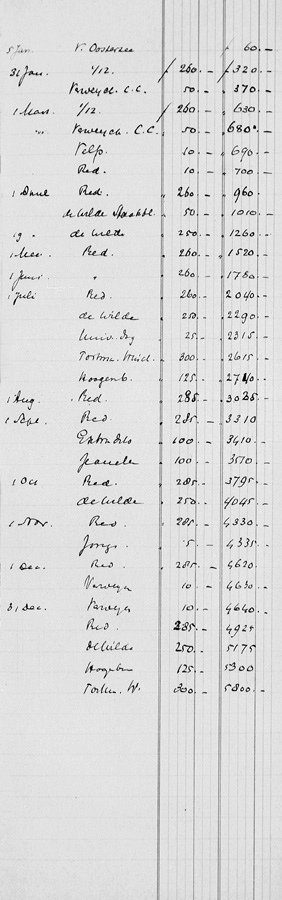 5 Jan. V. Oosterzee f 60.-
31 Jan. 1/12. f 260.- f 320.-
Verweij C.C. 50.- 370.-
1 Maart 1/12. f 260.- 630.-
Verweij C.C. 50.- 680.-
Velp. 10.- 690.-
Red. 10.- 700.-
Red. 260.- 960.-
de Wilde 50.- 1010.-
19 " de Wilde 250.- 1260.-
1 Mei. Red. 260.- 1520.-
1 Juni. " 260.- 1780.-
1 Juli Red. 260.- 2040.-
de Wilde 250.- 2290.-
25.- 2315.-
300.- 2615.-
Hoogenb. 125.- 2740.-
1 Aug. Red. 285.- 3025.-
1 Sept. Red. 285.- 3310
100.- 3410.-
100.- 3510.-
1 Oct Red. 285.- 3795.-
de Wilde 250.- 4045.-
1 Nov. Red. 285.- 4330.-
5.- 4335.-
1 Dec. Red. 285.- 4620.-
Verweij 10.- 4630.-
31 Dec. Verweij 10.- 4640.-
Red. 285.- 4925
de Wilde 250.- 5175
125.- 5300
300.- 5800.-